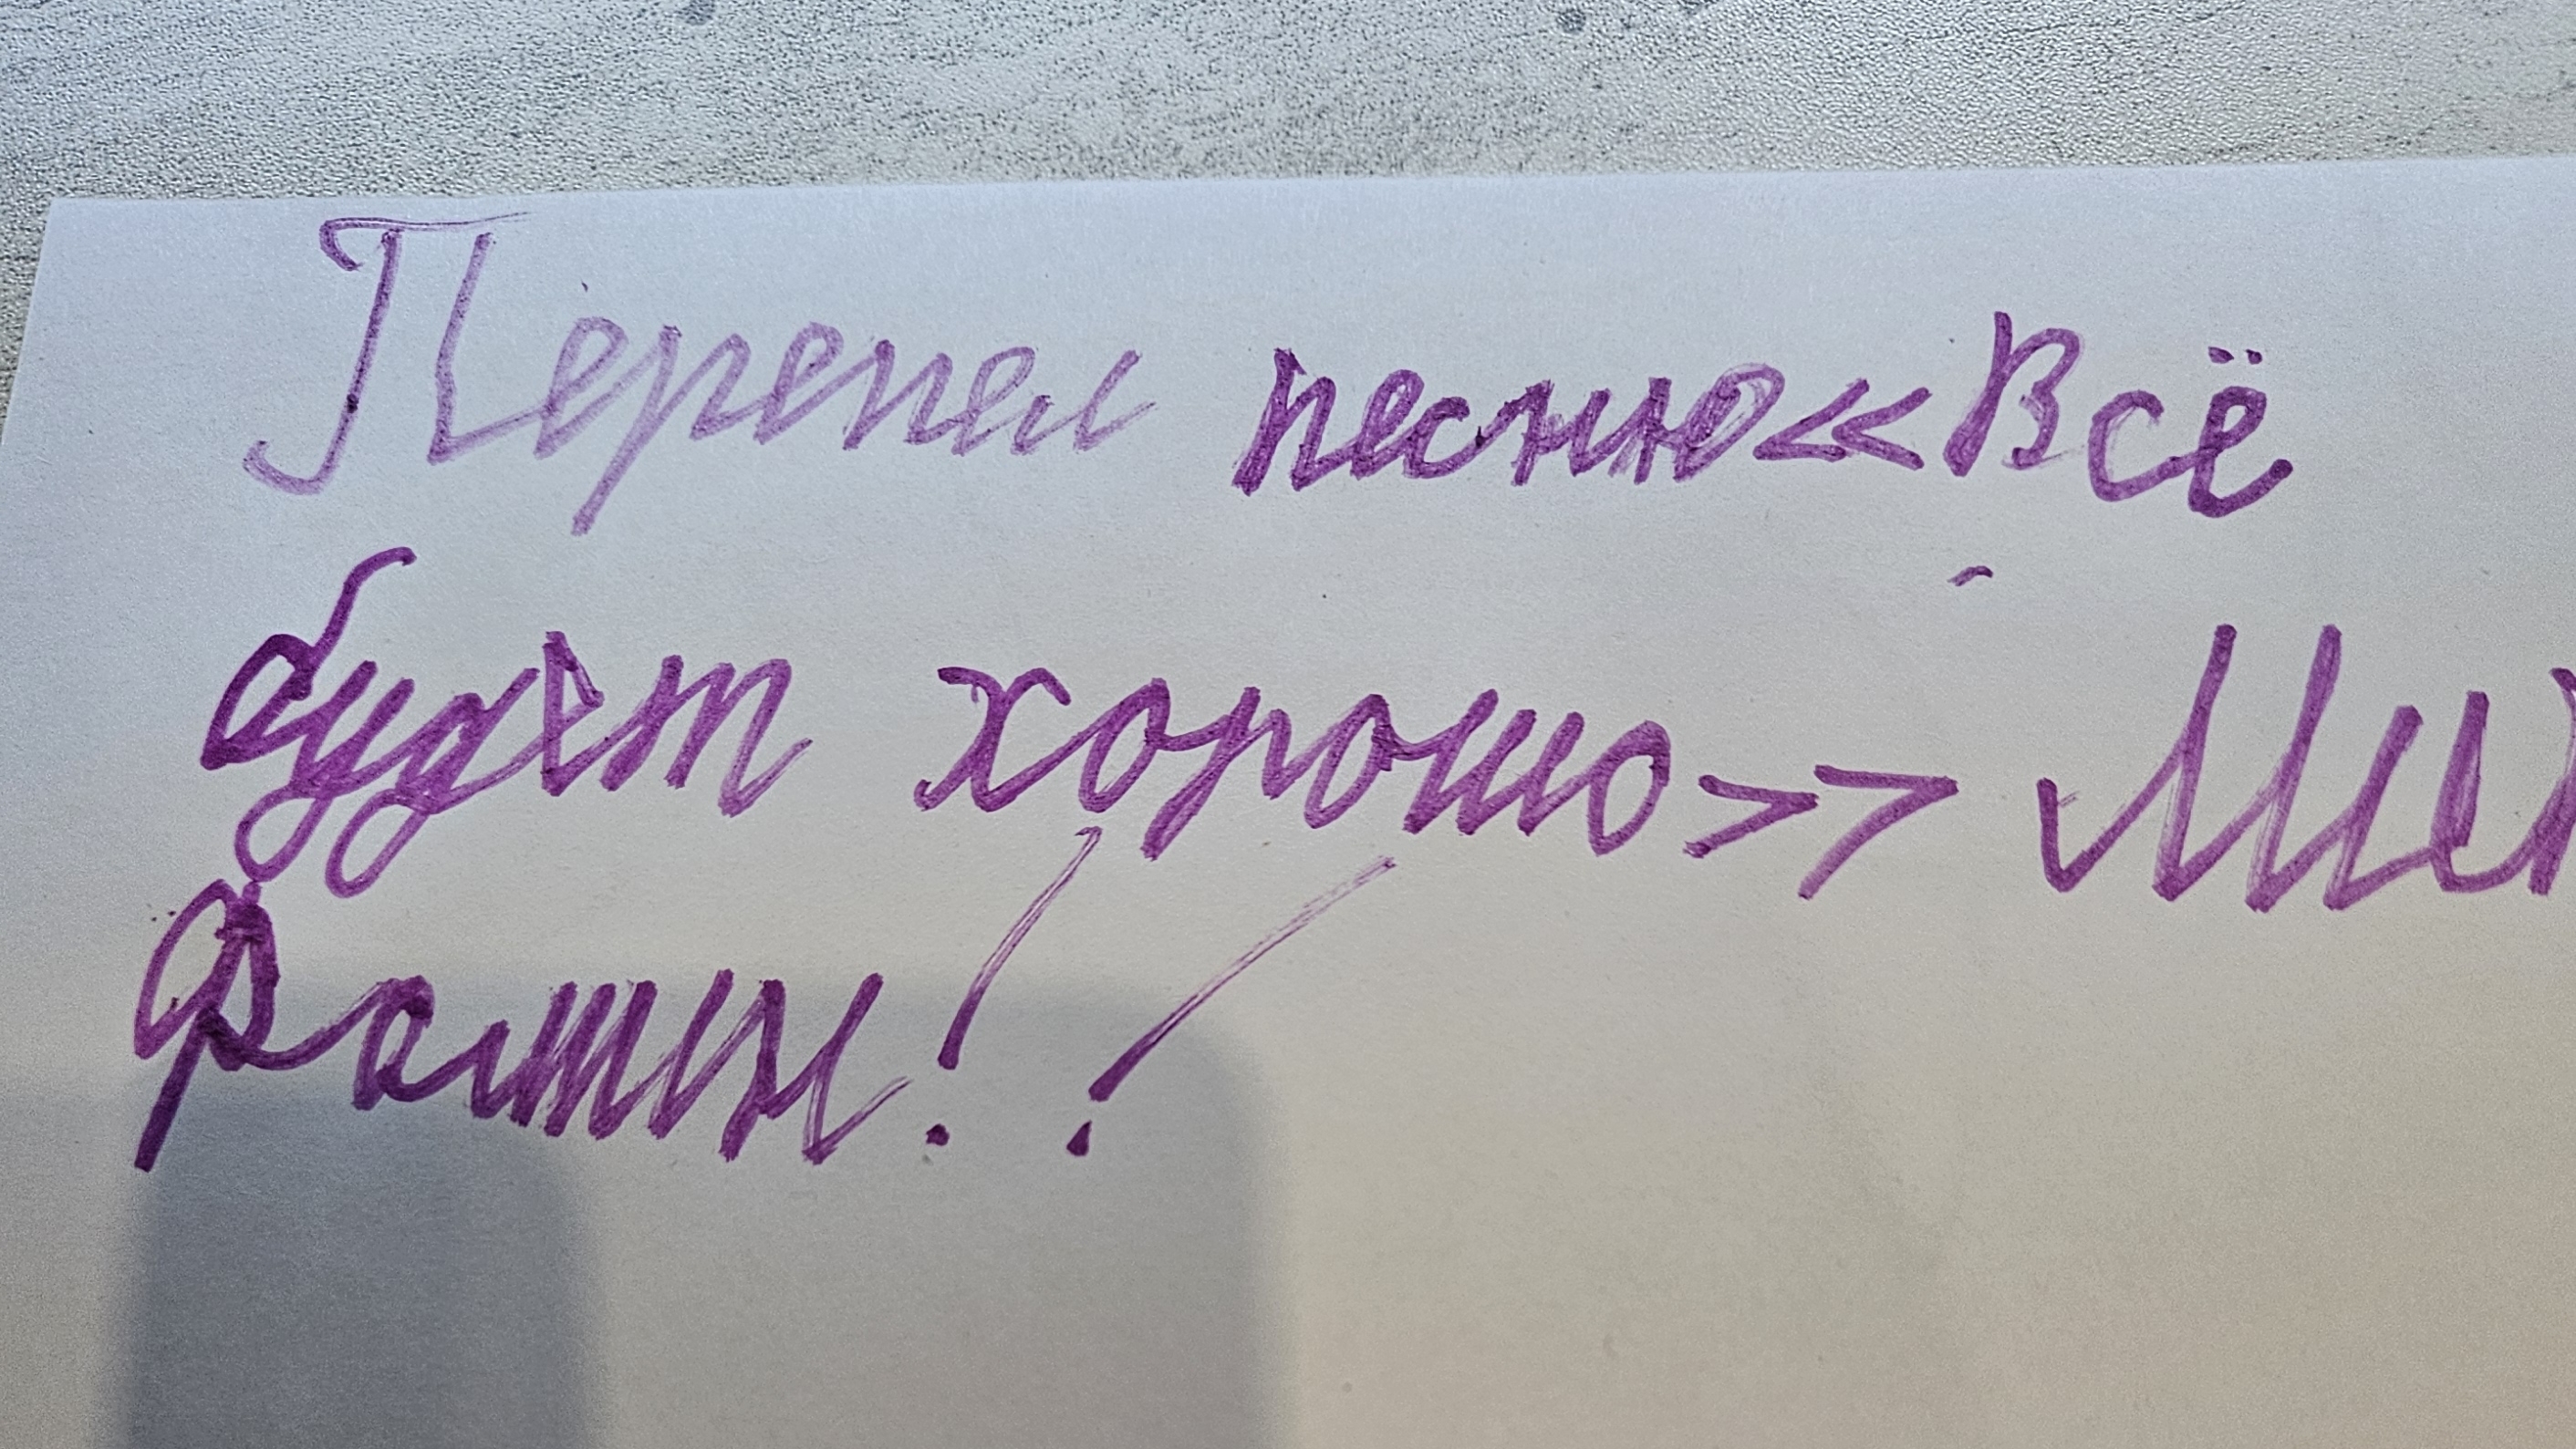 Перепел песню<<Всё
будет хорошо>>
Фатых!!